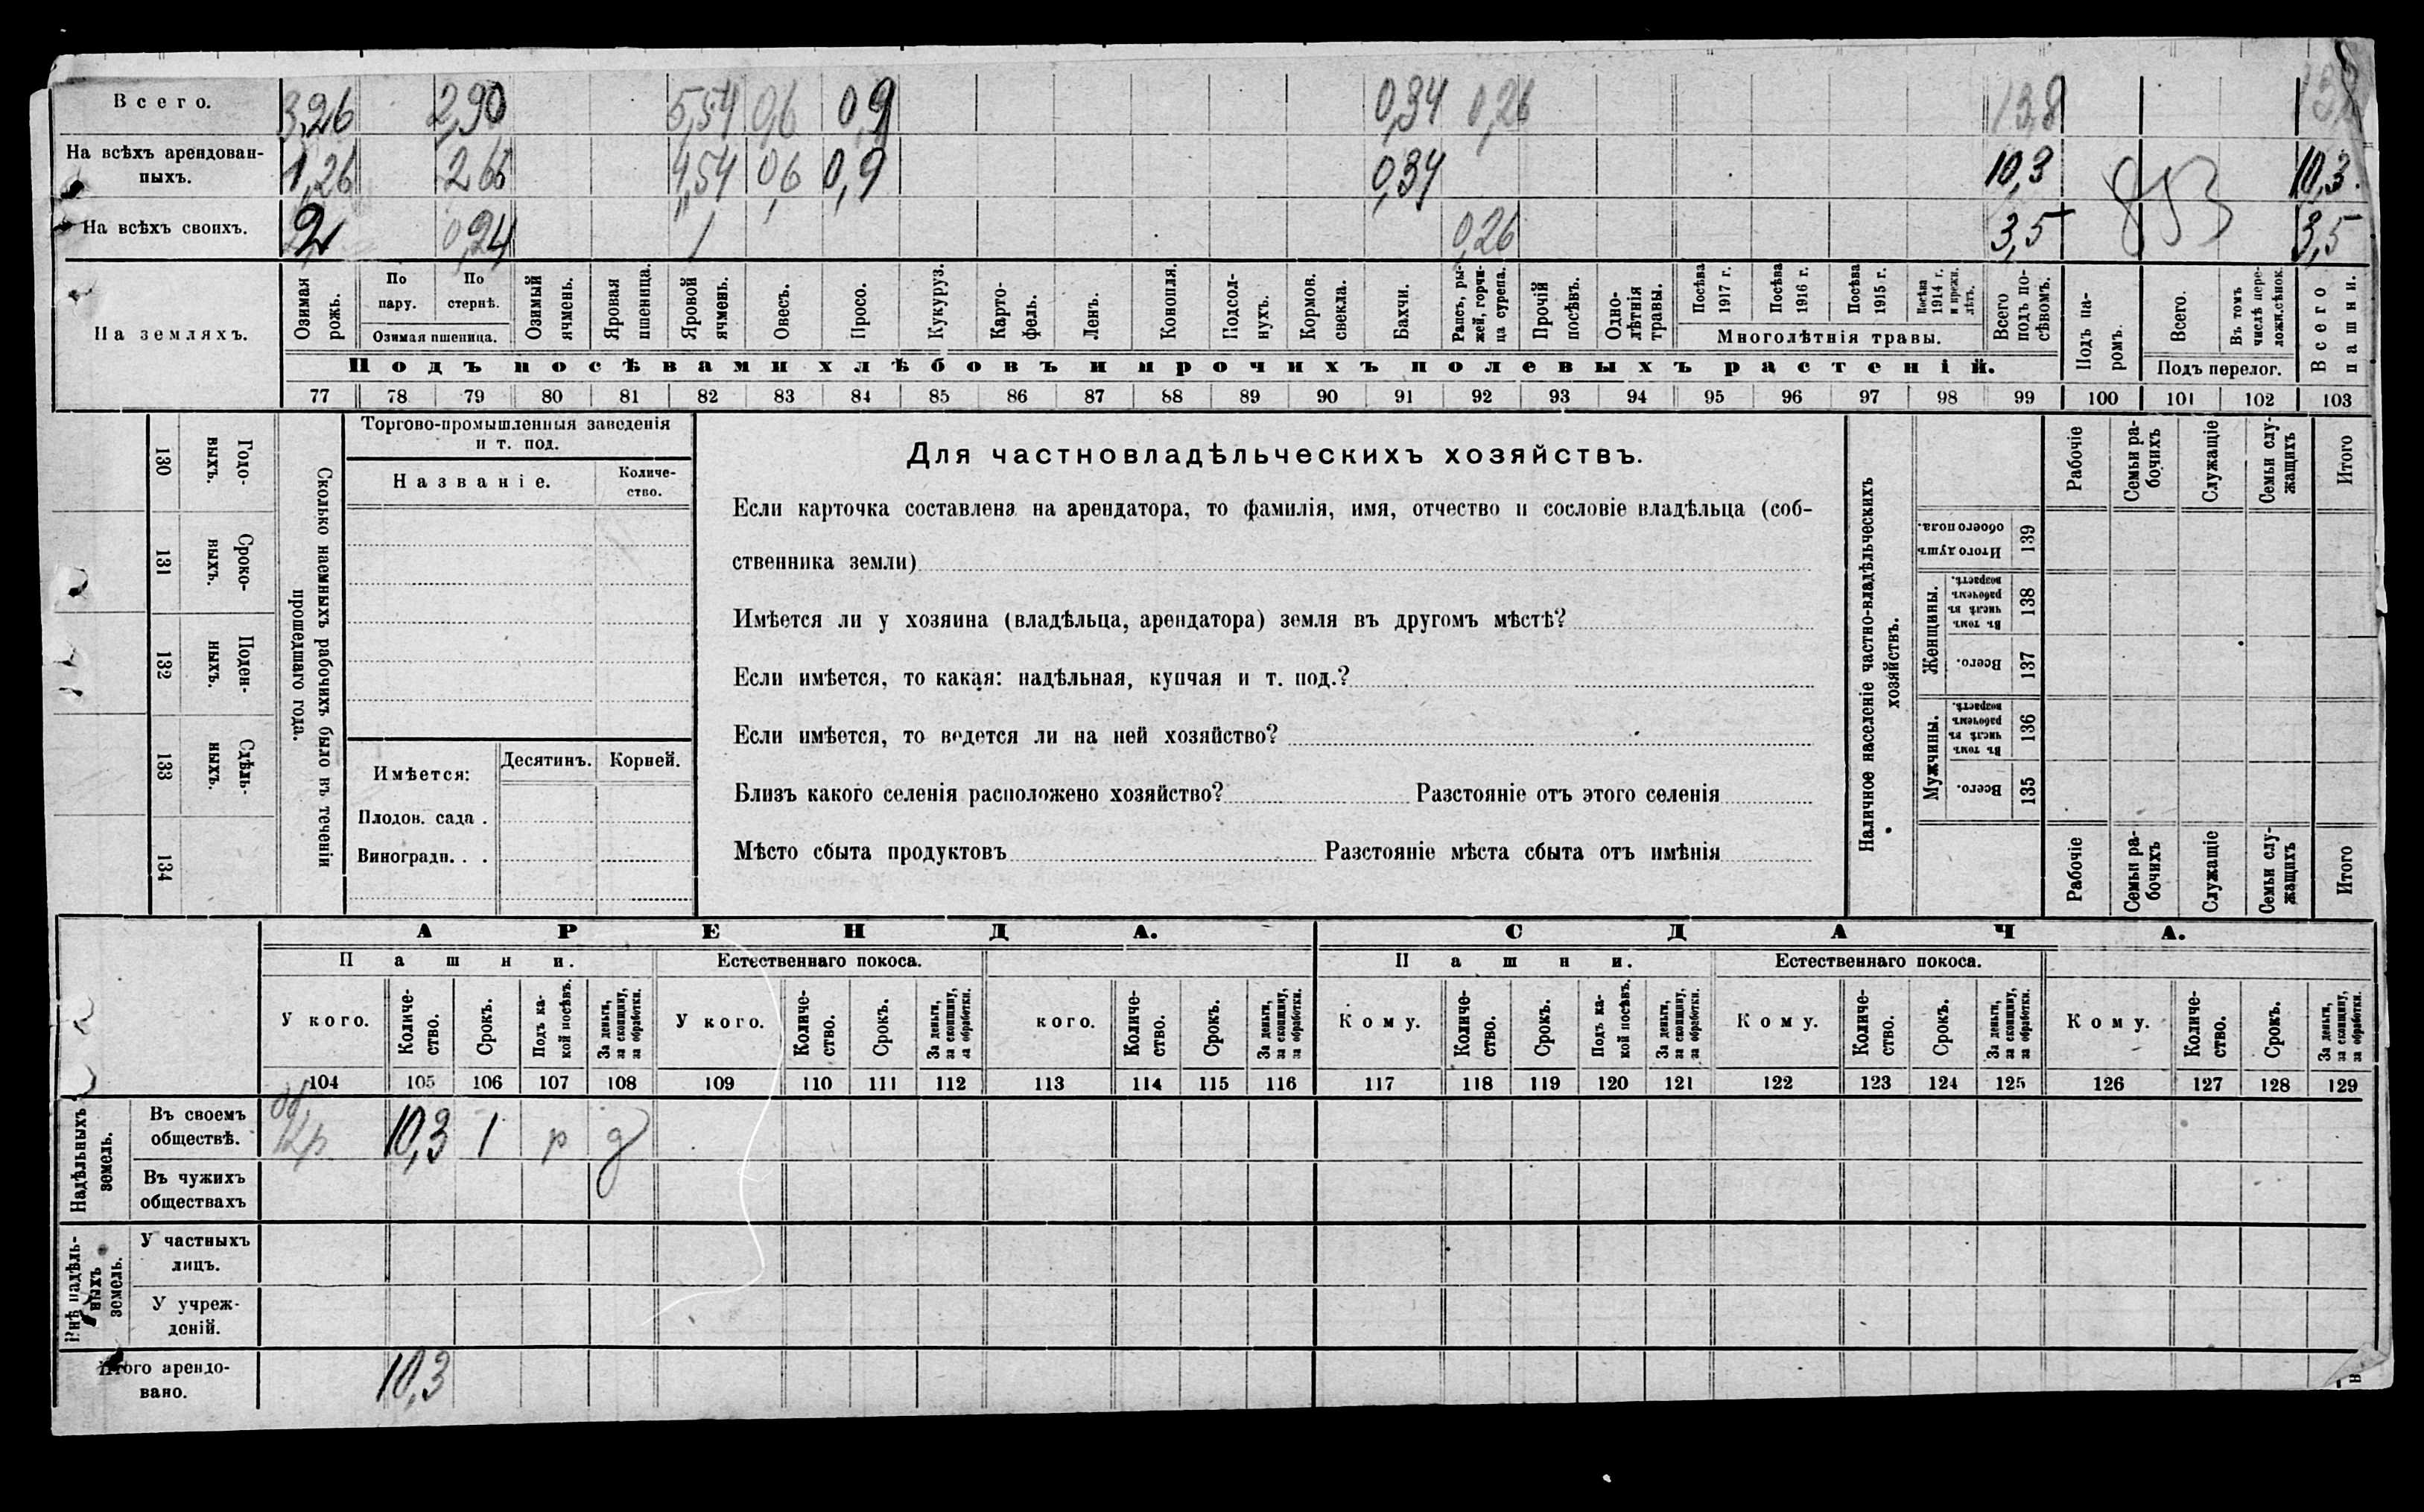 Всего. 3,26 2,90 5,54 0,6 0,9 0,34 0,26 13,8 13,8
На всѣхъ арендован-
ныхъ. 1,26 2,66 4,54 0,6 0,9 0,34 10,3 10,3.
На всѣхъ своихъ. 2 0,24 1 0,26 3,5 3,5
853
На земляхъ.
Озимая
рожь.
По
пару.
По
стернѣ.
Озимая пшеница.
Озимый
ячмень.
Яровая
пшеница.
Яровой
ячмень.
Овесъ.
Просо.
Кукуруз.
Карто-
фель.
Ленъ.
Конопля.
Подсол-
нухъ.
Кормов.
свекла.
Бахчи.
Рапсъ, ры-
жей, горчи-
ца сурепа.
Прочій
посѣвъ.
Одно-
лѣтнія
травы.
Посѣва
1917 г.
Посѣва
1916 г.
Посѣва
1915 г.
Посѣва
1914 г.
и прежн.
лѣтъ.
Многолѣтнія травы.
Всего
подъ по-
сѣвомъ.
Подъ па-
ромъ.
Всего.
Въ томъ
числѣ пере-
ложн. сѣнок.
Подъ перелог.
Всего
пашни.
Подъ посѣвами хлѣбовъ и прочихъ полевыхъ растеній.
77 78 79 80 81 82 83 84 85 86 87 88 89 90 91 92 93 94 95 96 97 98 99 100 101 102 103
Сколько наемныхъ рабочихъ было въ теченіи
прошедшаго года.
Годо-
выхъ.
130
Сроко-
выхъ.
131
Поден-
ныхъ.
132
Сдѣль-
ныхъ.
133
134
Торгово-промышленныя заведенія
и т. под.
Названіе.
Количе-
ство.
Имѣется:
Десятинъ. Корней.
Плодов. сада .
Виноградн. . .
Для частновладѣльческихъ хозяйствъ.
Если карточка составлена на арендатора, то фамилія, имя, отчество и сословіе владѣльца (соб-
ственника земли)
Имѣется ли у хозяина (владѣльца, арендатора) земля въ другомъ мѣстѣ?
Если имѣется, то какая: надѣльная, купчая и т. под.?
Если имѣется, то ведется ли на ней хозяйство?
Близъ какого селенія расположено хозяйство? Разстояніе отъ этого селенія
Мѣсто сбыта продуктовъ Разстояніе мѣста сбыта отъ имѣнія
Наличное населеніе частно-владѣльческихъ
хозяйствъ.
Рабочіе
Семьи ра-
бочихъ
Служащіе
Семьи слу-
жащихъ
Итого
Итого душъ
обоего пола.
139
Женщины.
Въ томъ
числѣ въ
рабочемъ
возрастѣ.
138
Всего.
137
Мужчины.
Въ томъ
числѣ въ
рабочемъ
возрастѣ.
136
Всего.
135
Рабочіе
Семьи ра-
бочихъ
Служащіе
Семьи слу-
жащихъ
Итого
АРЕНДА. СДАЧА.
Пашни. Естественнаго покоса. Пашни. Естественнаго покоса.
У кого.
Количе-
ство.
Срокъ.
Подъ ка-
кой посѣвъ.
За деньги,
за скопщину,
за обработки.
У кого.
Количе-
ство.
Срокъ.
За деньги,
за скопщину,
за обработки.
кого.
Количе-
ство.
Срокъ.
За деньги,
за скопщину,
за обработки.
Кому.
Количе-
ство.
Срокъ.
Подъ ка-
кой посѣвъ.
За деньги,
за скопщину,
за обработки.
Кому.
Количе-
ство.
Срокъ.
За деньги,
за скопщину,
за обработки.
Кому.
Количе-
ство.
Срокъ.
За деньги,
за скопщину,
за обработки.
104 105 106 107 108 109 110 111 112 113 114 115 116 117 118 119 120 121 122 123 124 125 126 127 128 129
Надѣльныхъ
земель.
Въ своемъ
обществѣ. 10,3 1 р д
Въ чужихъ
обществахъ
Внѣ надѣль-
ныхъ
земель.
У частныхъ
лицъ.
У учреж-
деній.
Итого арендо-
вано. 10,3